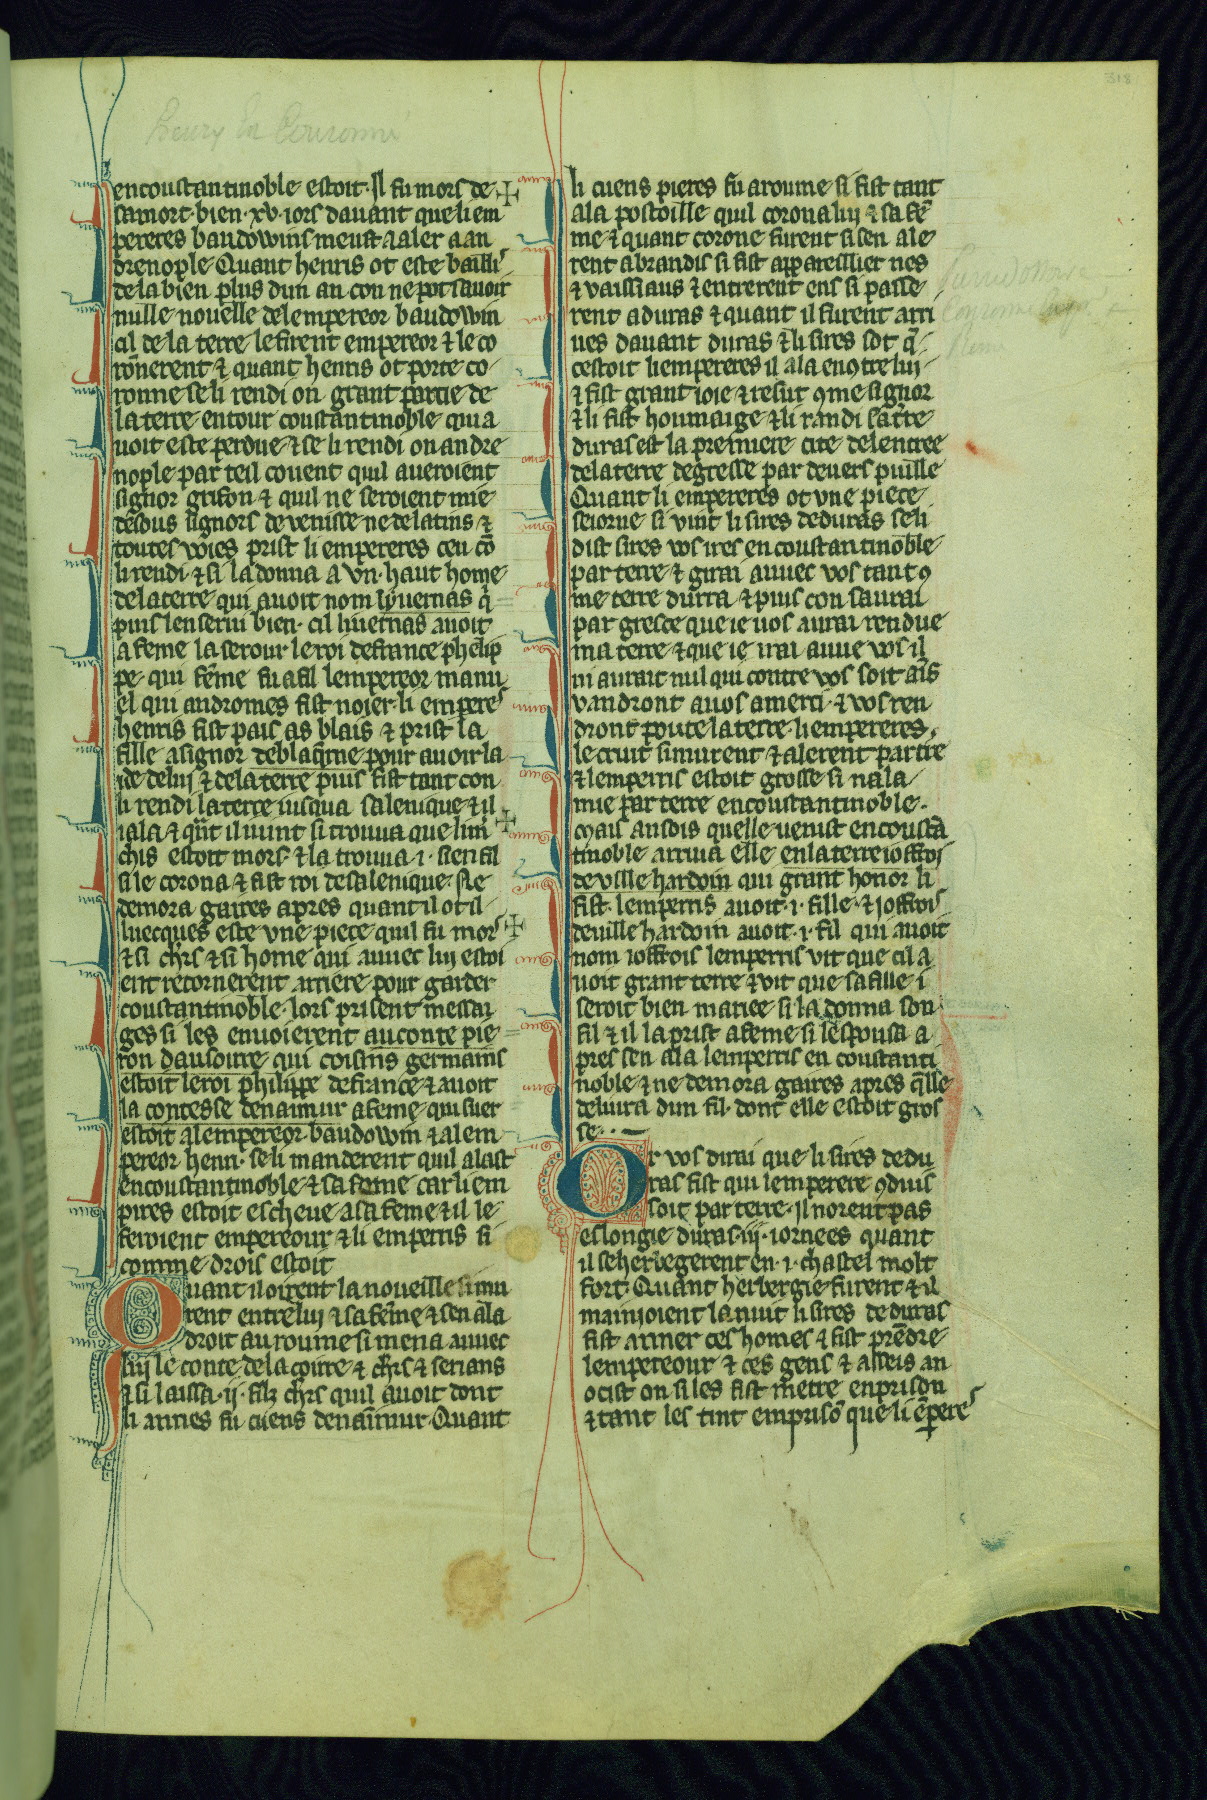 318
henry en Couronné
encoustantinoble estoit. Il fu mors de
sa mort. bien .xv. iors dauant que li em
pereres baudowins meust a aler a an
drenople. Quant henris ot este bailli
de la bien plus dun an con ne pot sauoir
nulle nouelle delempereor baudowin
cil de la terre le firent empereor ⁊ le co
rōnerent ⁊ quant henris ot porte co
ronne se li rendi on grant partie de
la terre entour coustantinoble qui a
uoit este perdue ⁊ se li rendi on andre
nople par teil couent quil aueroient
signor grifon ⁊ quil ne seroient mie
desous signors de venisse ne de latins ⁊
toutes voies prist li empereres ceu cō
li rendi ⁊ si la donna a vn haut home
de la terre qui auoit nom lyuernas q̄
puis len serui bien. cil liuernas auoit
a feme la serour le roi de france phelip
pe. qui feme fu a fil lempereor manu
el qui andromes fist noier. li empere
henris fist pais as blais ⁊ prist la
fille a signor de blaq̄me pour auoir la
ide de luy ⁊ de la terre puis fist tant con
li rendi la terre iusqua salenique ⁊ il
i ala ⁊ qūt il uint si trouua que li mr̄
chis estoit mors. ⁊ la trouua .i. sien fil
si le corona ⁊ fist roi de salenique. Ne
demora gaires apres quant il ot il
luecques este vne piece quil fu mors
⁊ si chr̄s ⁊ si home qui auuec luy estoi
ent retornerent arriere pour garder
coustantinoble. lors prisent messai
ges si les enuoierent au conte pie
ron dausoirre qui coisins germains
estoit le roi philippe de france ⁊ auoit
la contesse de namur a feme. qui suer
estoit a lempereor. baudowin ⁊ a lem
pereor henri. se li manderent quil alast
encoustantinoble ⁊ sa feme car li em
pires estoit escheue a sa feme ⁊ il le
feroient empereour ⁊ li emperris si
comme drois estoit
Quant il oirent la noueille si mu
rent entre luy ⁊ sa feme ⁊ sen ala
droit au roume si mena auuec
luy le conte de la coirre ⁊ chr̄s ⁊ serians
⁊ si laissa .ij. filz chr̄s quil auoit dont
li annes fu cuens de namur Quant
li cuens pieres fu a roume si fist tant
a la postoille quil corona luy ⁊ sa fē
me ⁊ quant corone furent si sen ale
rent a brandis si fist appareillier nes
⁊ vaissiaus ⁊ entrerent ens si passe
rent a duras ⁊ quant il furent arri
ues dauant duras ⁊ li sires sot q̄
cestoit li empereres il ala en 9tre luy
⁊ fist grant ioie ⁊ resut 9me signor
⁊ li fist houmaige ⁊ li randi sa tr̄re
duras est la premiere cite de lentree
de la terre de gresse par deuers puille
Quant li empereres ot vne piece
seiorne si vint li sires de duras se li
dist sires vos ires en coustantinoble
par terre ⁊ girai auuec vos tant 9
me terre durra ⁊ puis con saurai
par gresce que ie uos aurai rendue
ma terre ⁊ que ie irai auue vos il
ni aurait nul qui contre vos soit ains
vandront a uos a merci ⁊ vos ren
dront toute la terre. li empereres
le cruit si murent ⁊ alerent par tr̄re
⁊ lemperris estoit grosse si nala
mie par terre en coustantinoble.
Mais ansois quelle uenist en coustā
tinoble arriua elle en la terre ioffroi
de ville hardoin qui grant honor li
fist. lemperris auoit .i. fille. ⁊ ioffroi
de uille hardoin auoit .i. fil qui auoit
nom ioffrois lemperris vit que cil a
uoit grant terre ⁊ vit que sa fille i
seroit bien mariee si la donna son
fil ⁊ il la prist a feme si lespousa a
pres sen ala lemperris en coustanti
noble ⁊ ne demora gaires apres q̄lle
deliura dun fil. dont elle estoit gros
se.
Or vos dirai que li sires de du
ras fist qui lemperere 9duis
soit par terre. Il norent pas
eslongie duras .iij. iornees quant
il se herbegerent en .i. chastel molt
fort. Quant herbergie furent ⁊ il
mainioient la nuit li sires de duras
fist armer ces homes ⁊ fist prēdre
lempereour ⁊ ces gens ⁊ asseis an
ocist on si les fist metre en prison
⁊ tant les tint emprisō que li ēpere